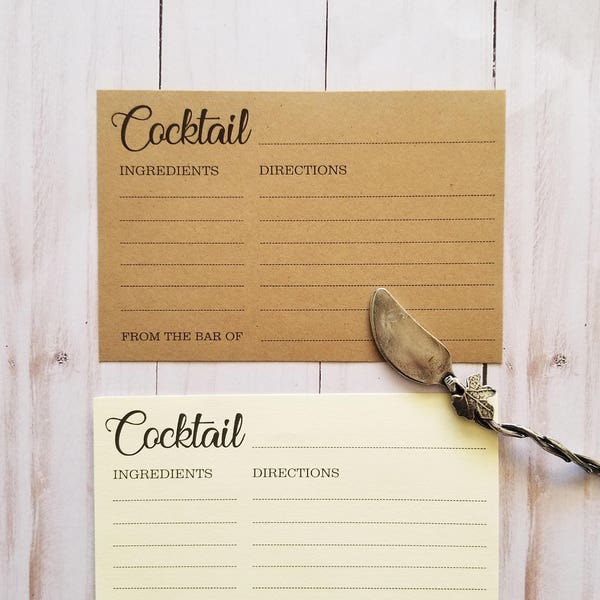 Cocktail
INGREDIENTS DIRECTIONS
FROM THE BAR OF
Cocktail
INGREDIENTS DIRECTIONS